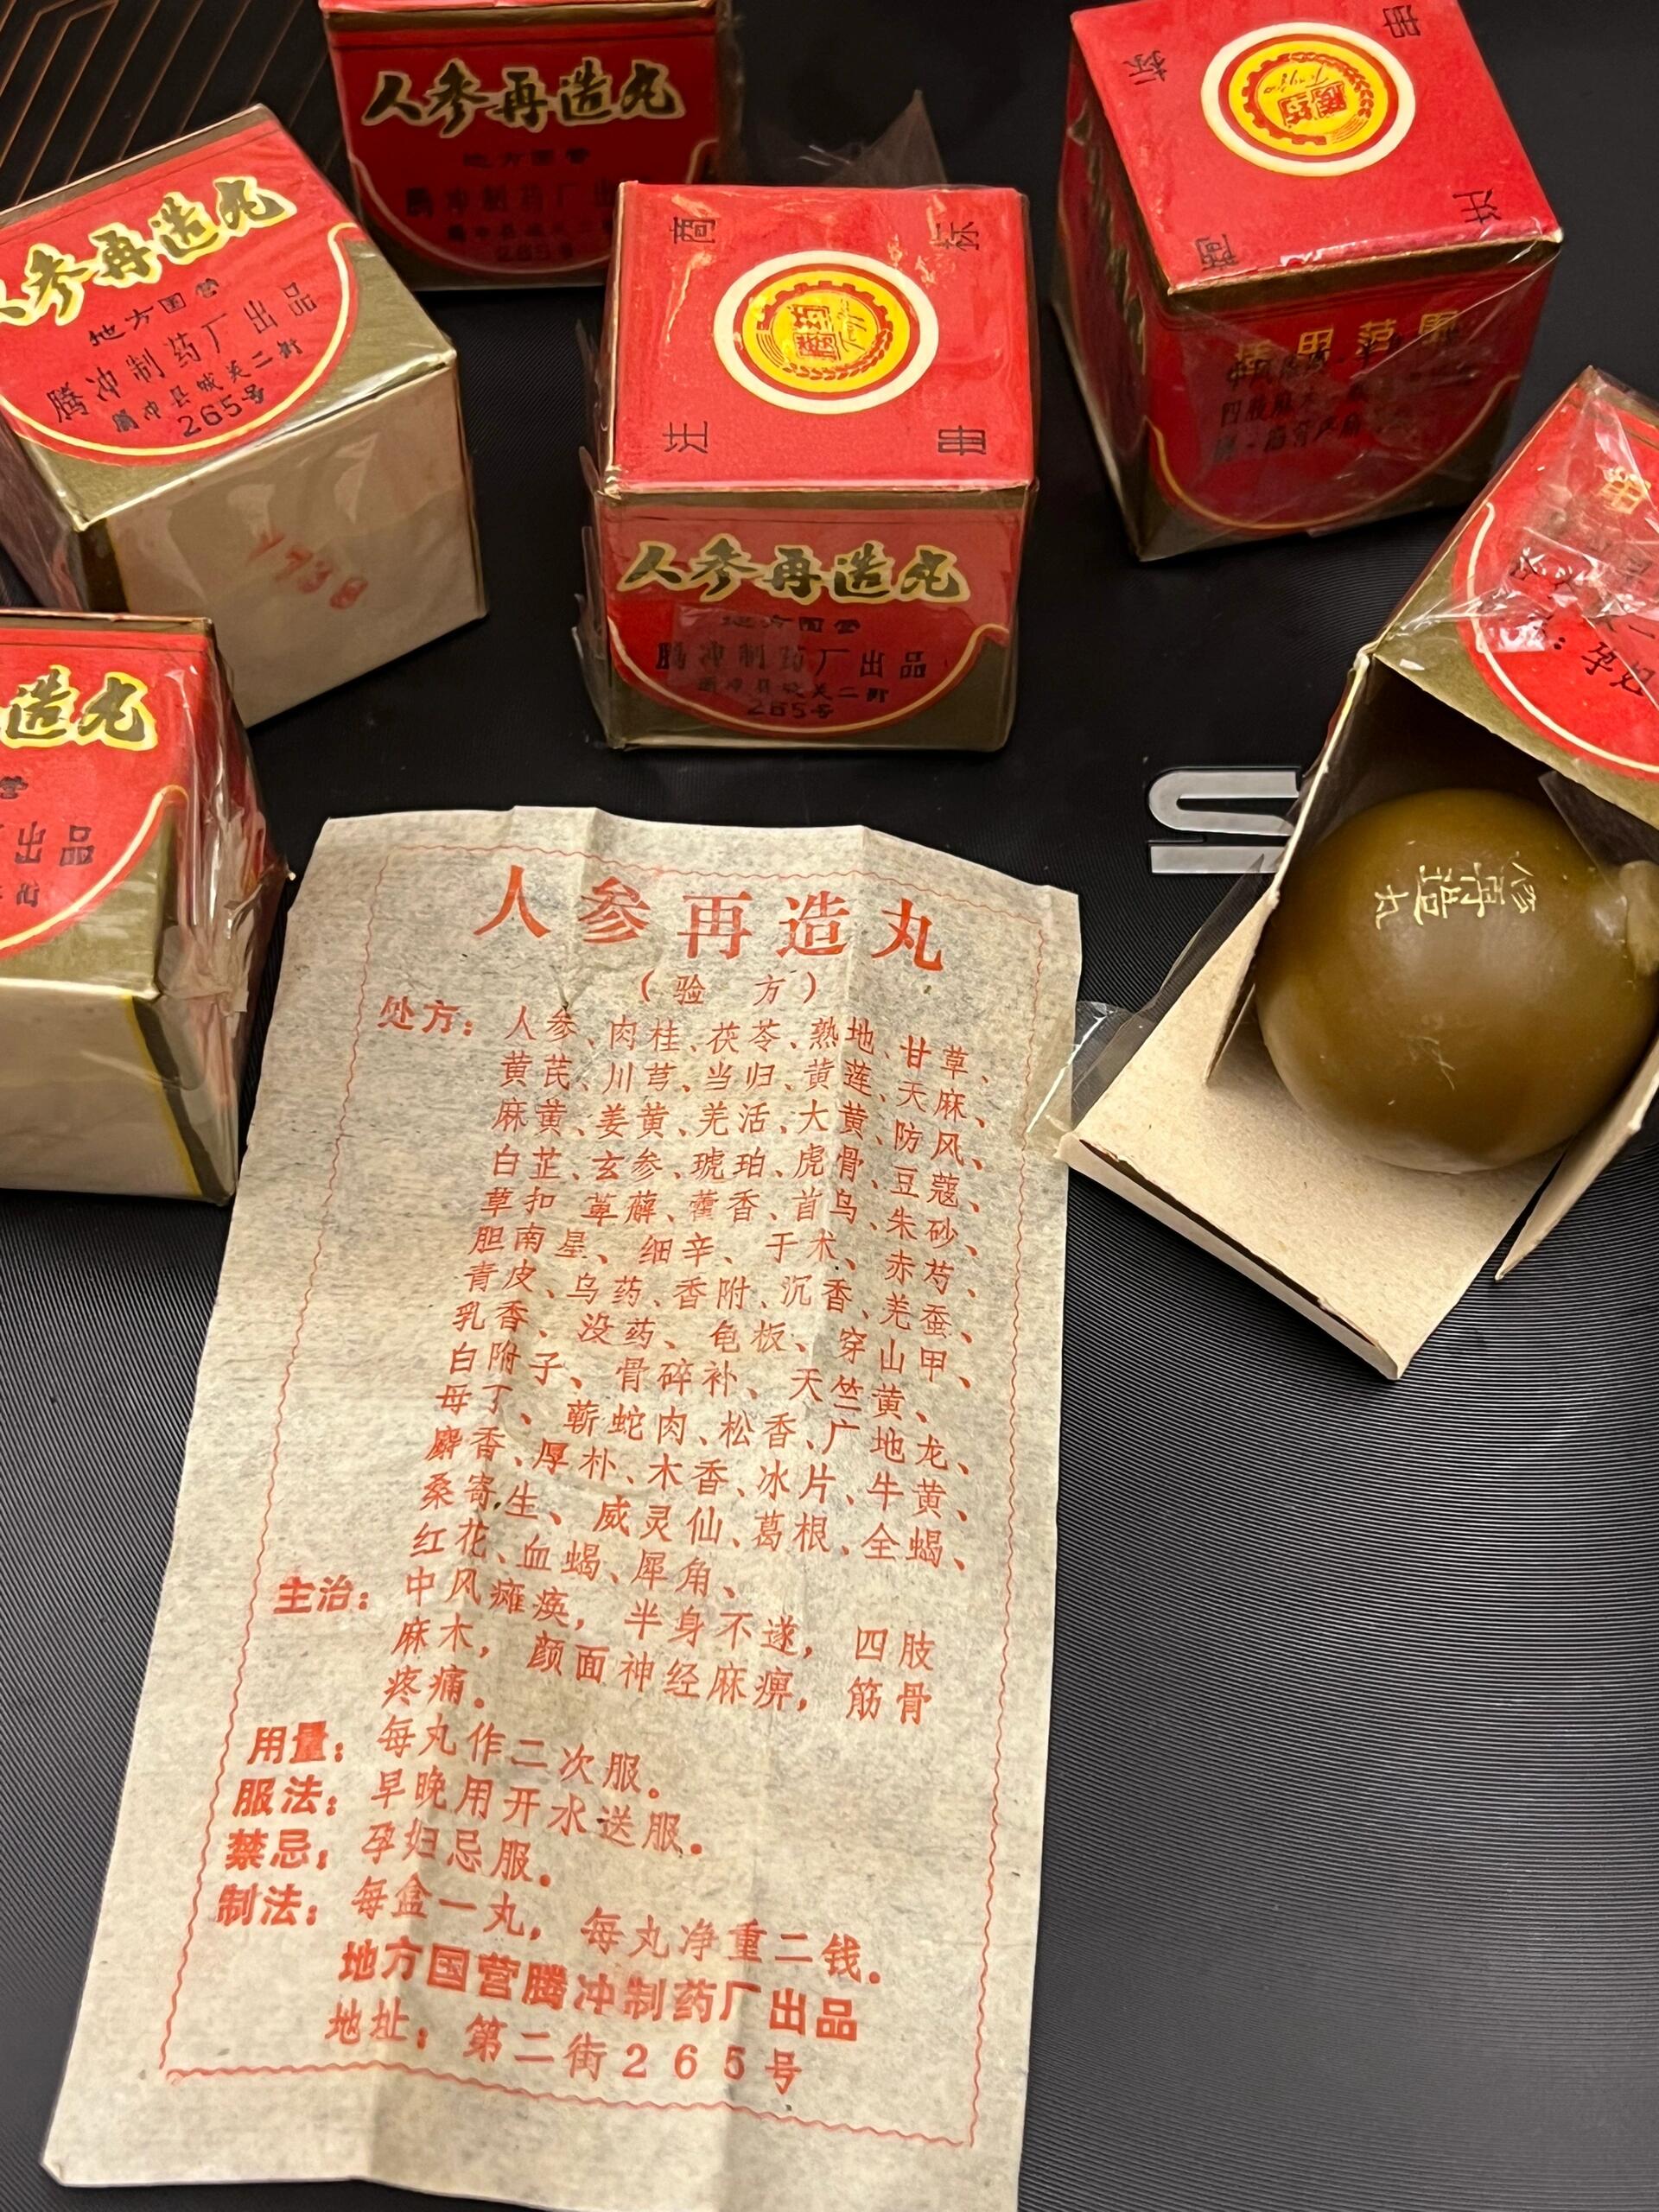 人参再造丸
地方国营
腾冲制药厂出品
265号
人参再造丸
地方国营
腾冲制药厂出品
腾冲县城关二街
265号
造丸
营
出品
商标
注册
腾药
人参再造丸
地方国营
腾冲制药厂出品
腾冲县城关二街
265号
商标
注册
腾药
适用范围
四肢麻木
孕妇
参再造丸
S
人参再造丸
(验方)
处方：人参、肉桂、茯苓、熟地、甘草、
黄芪、川芎、当归、黄莲、天麻、
麻黄、姜黄、羌活、大黄、防风、
白芷、玄参、琥珀、虎骨、豆蔻、
草扣 萆薢、藿香、首乌、朱砂、
胆南星、细辛、于术、赤芍、
青皮、乌药、香附、沉香、羌蚕、
乳香、没药、龟板、穿山甲、
白附子、骨碎补、天竺黄、
母丁、蕲蛇肉、松香、广地龙、
麝香、厚朴、木香、冰片、牛黄、
桑寄生、威灵仙、葛根、全蝎、
红花、血蝎、犀角、
主治：中风瘫痪，半身不遂，四肢
麻木，颜面神经麻痹，筋骨
疼痛。
用量：每丸作二次服。
服法：早晚用开水送服。
禁忌：孕妇忌服。
制法：每盒一丸，每丸净重二钱。
地方国营腾冲制药厂出品
地址：第二街265号